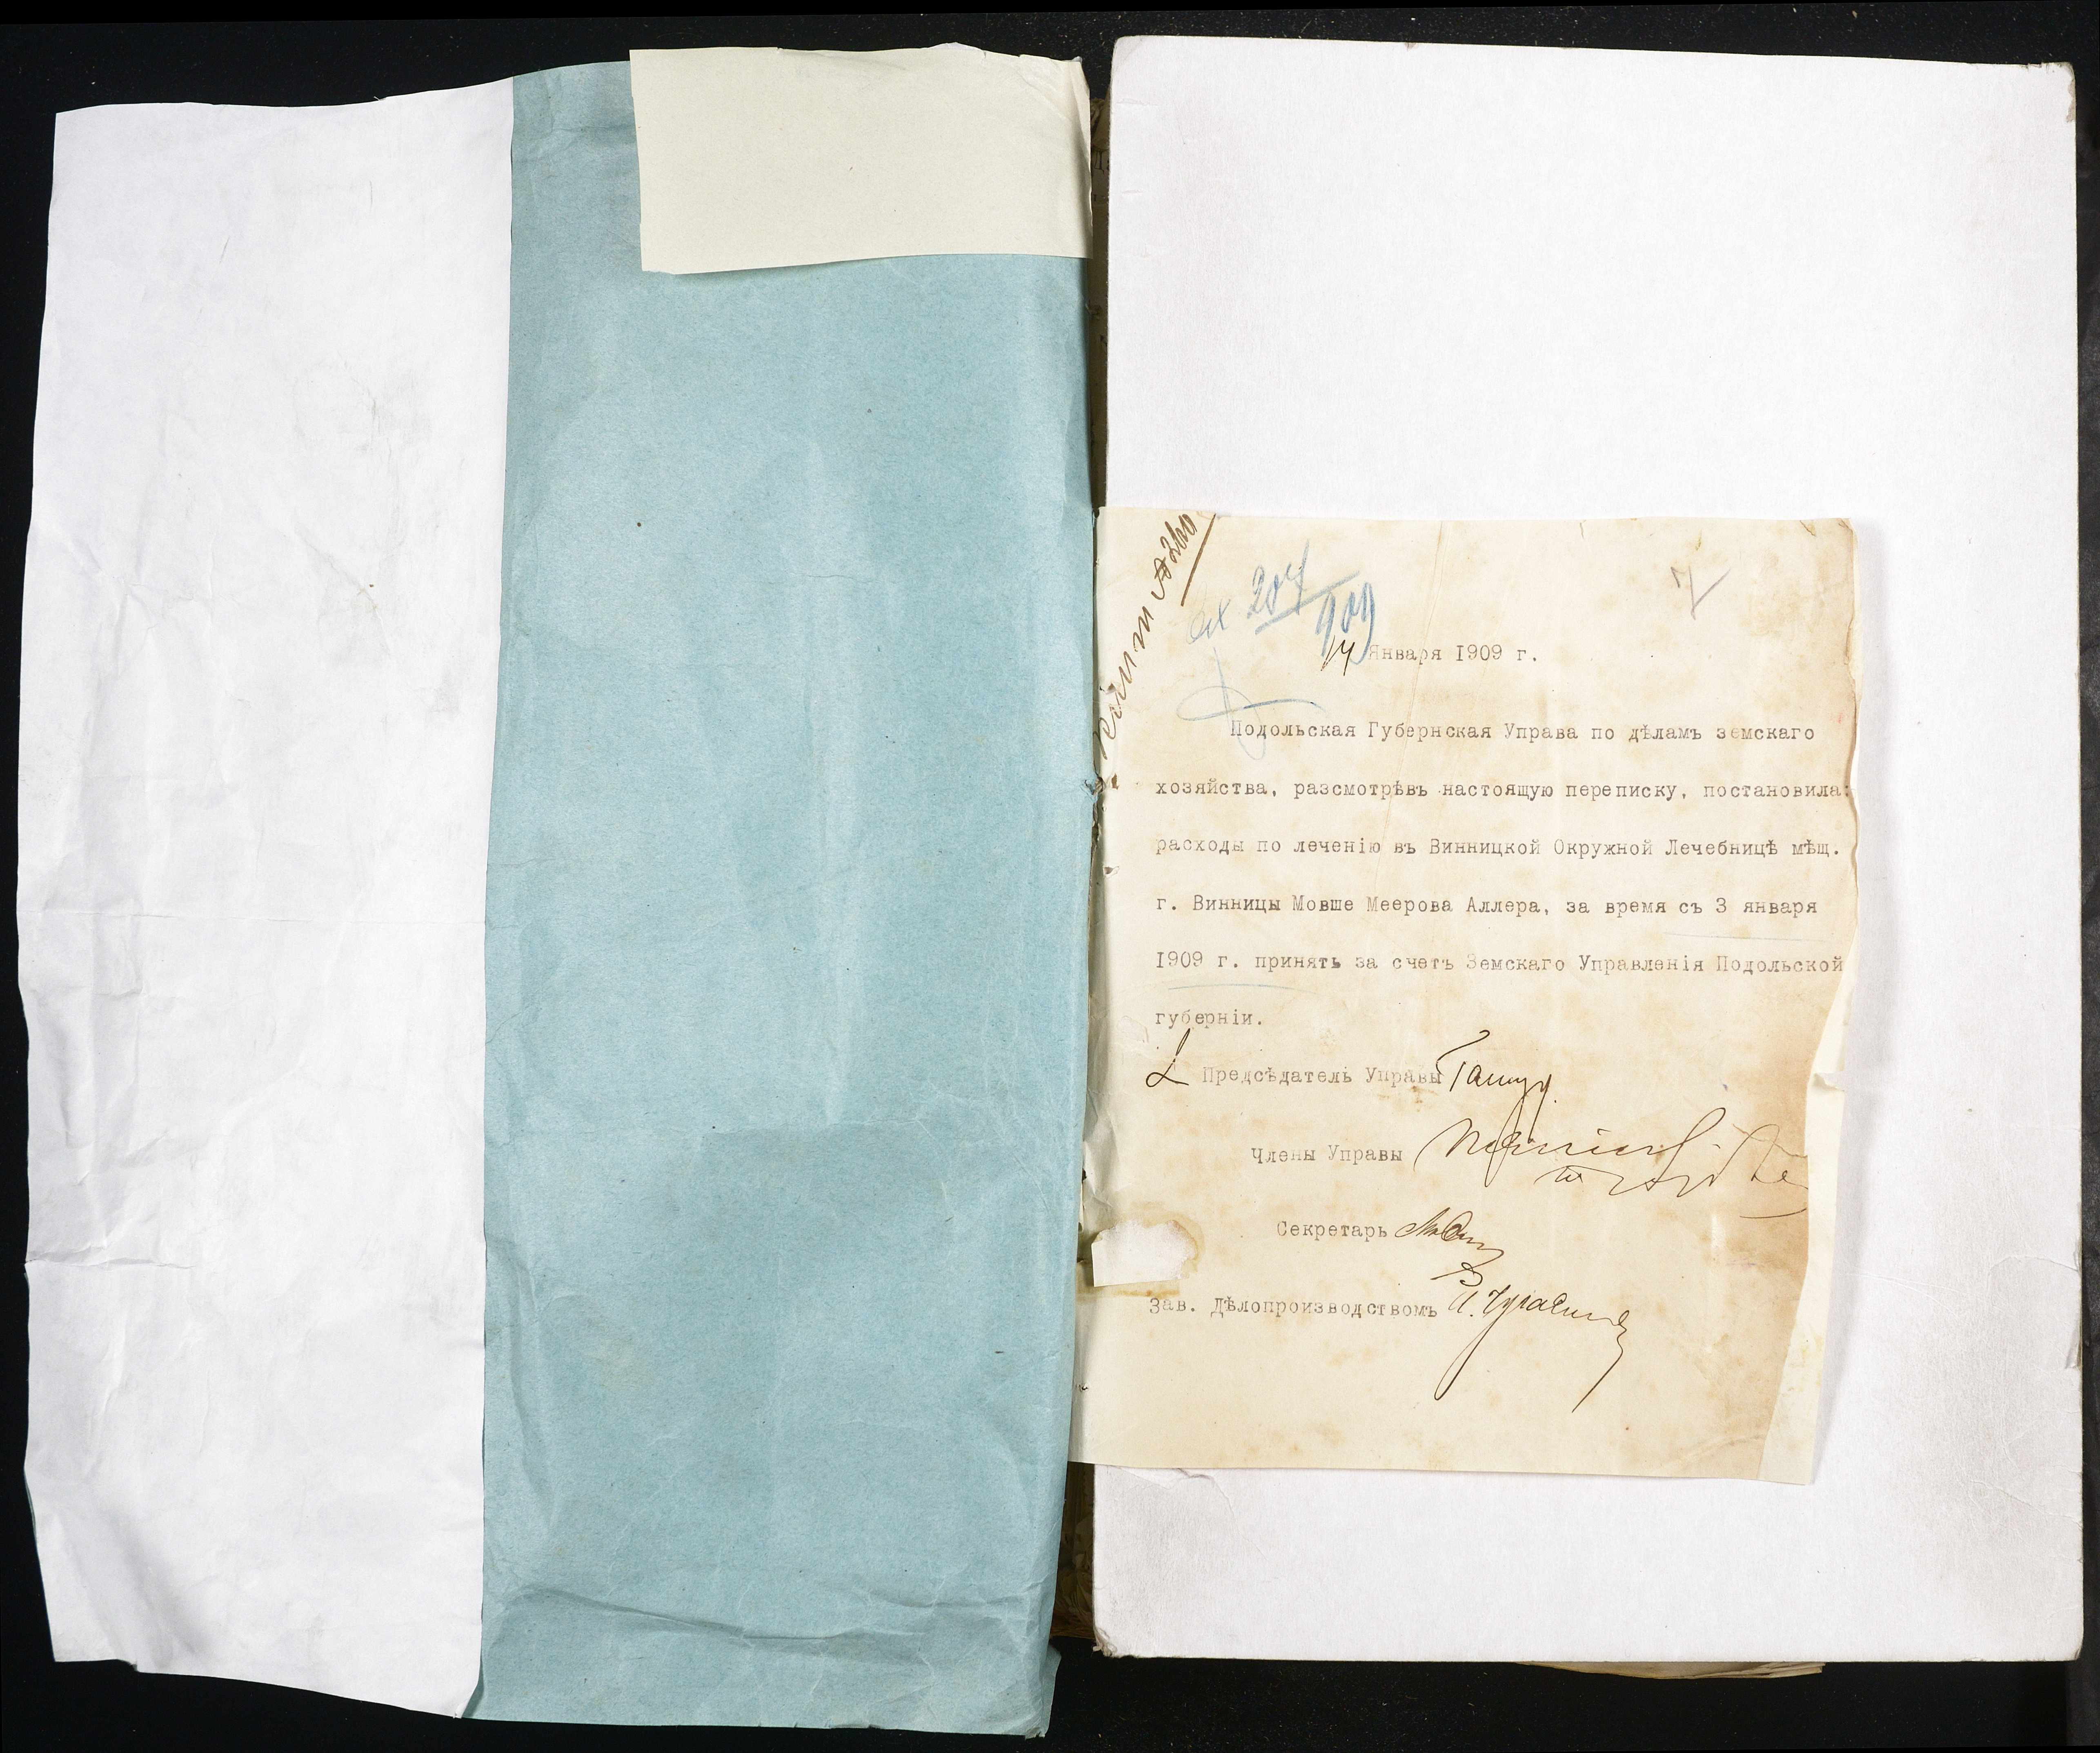 207
909
7
14 Января 1909 г.
Подольская Губернская Управа по дѣламъ земскаго
хозяйства, разсмотрѣвъ настоящую переписку, постановила:
расходы по леченію въ Винницкой Окружной Лечебницѣ мѣщ.
г. Винницы Мовше Меерова Аллера, за время съ 3 января
1909 г. принять за счетъ Земскаго Управленія Подольской
губерніи.
Предсѣдатель Управы
Члены Управы
Секретарь
Зав. Дѣлопроизводствомъ